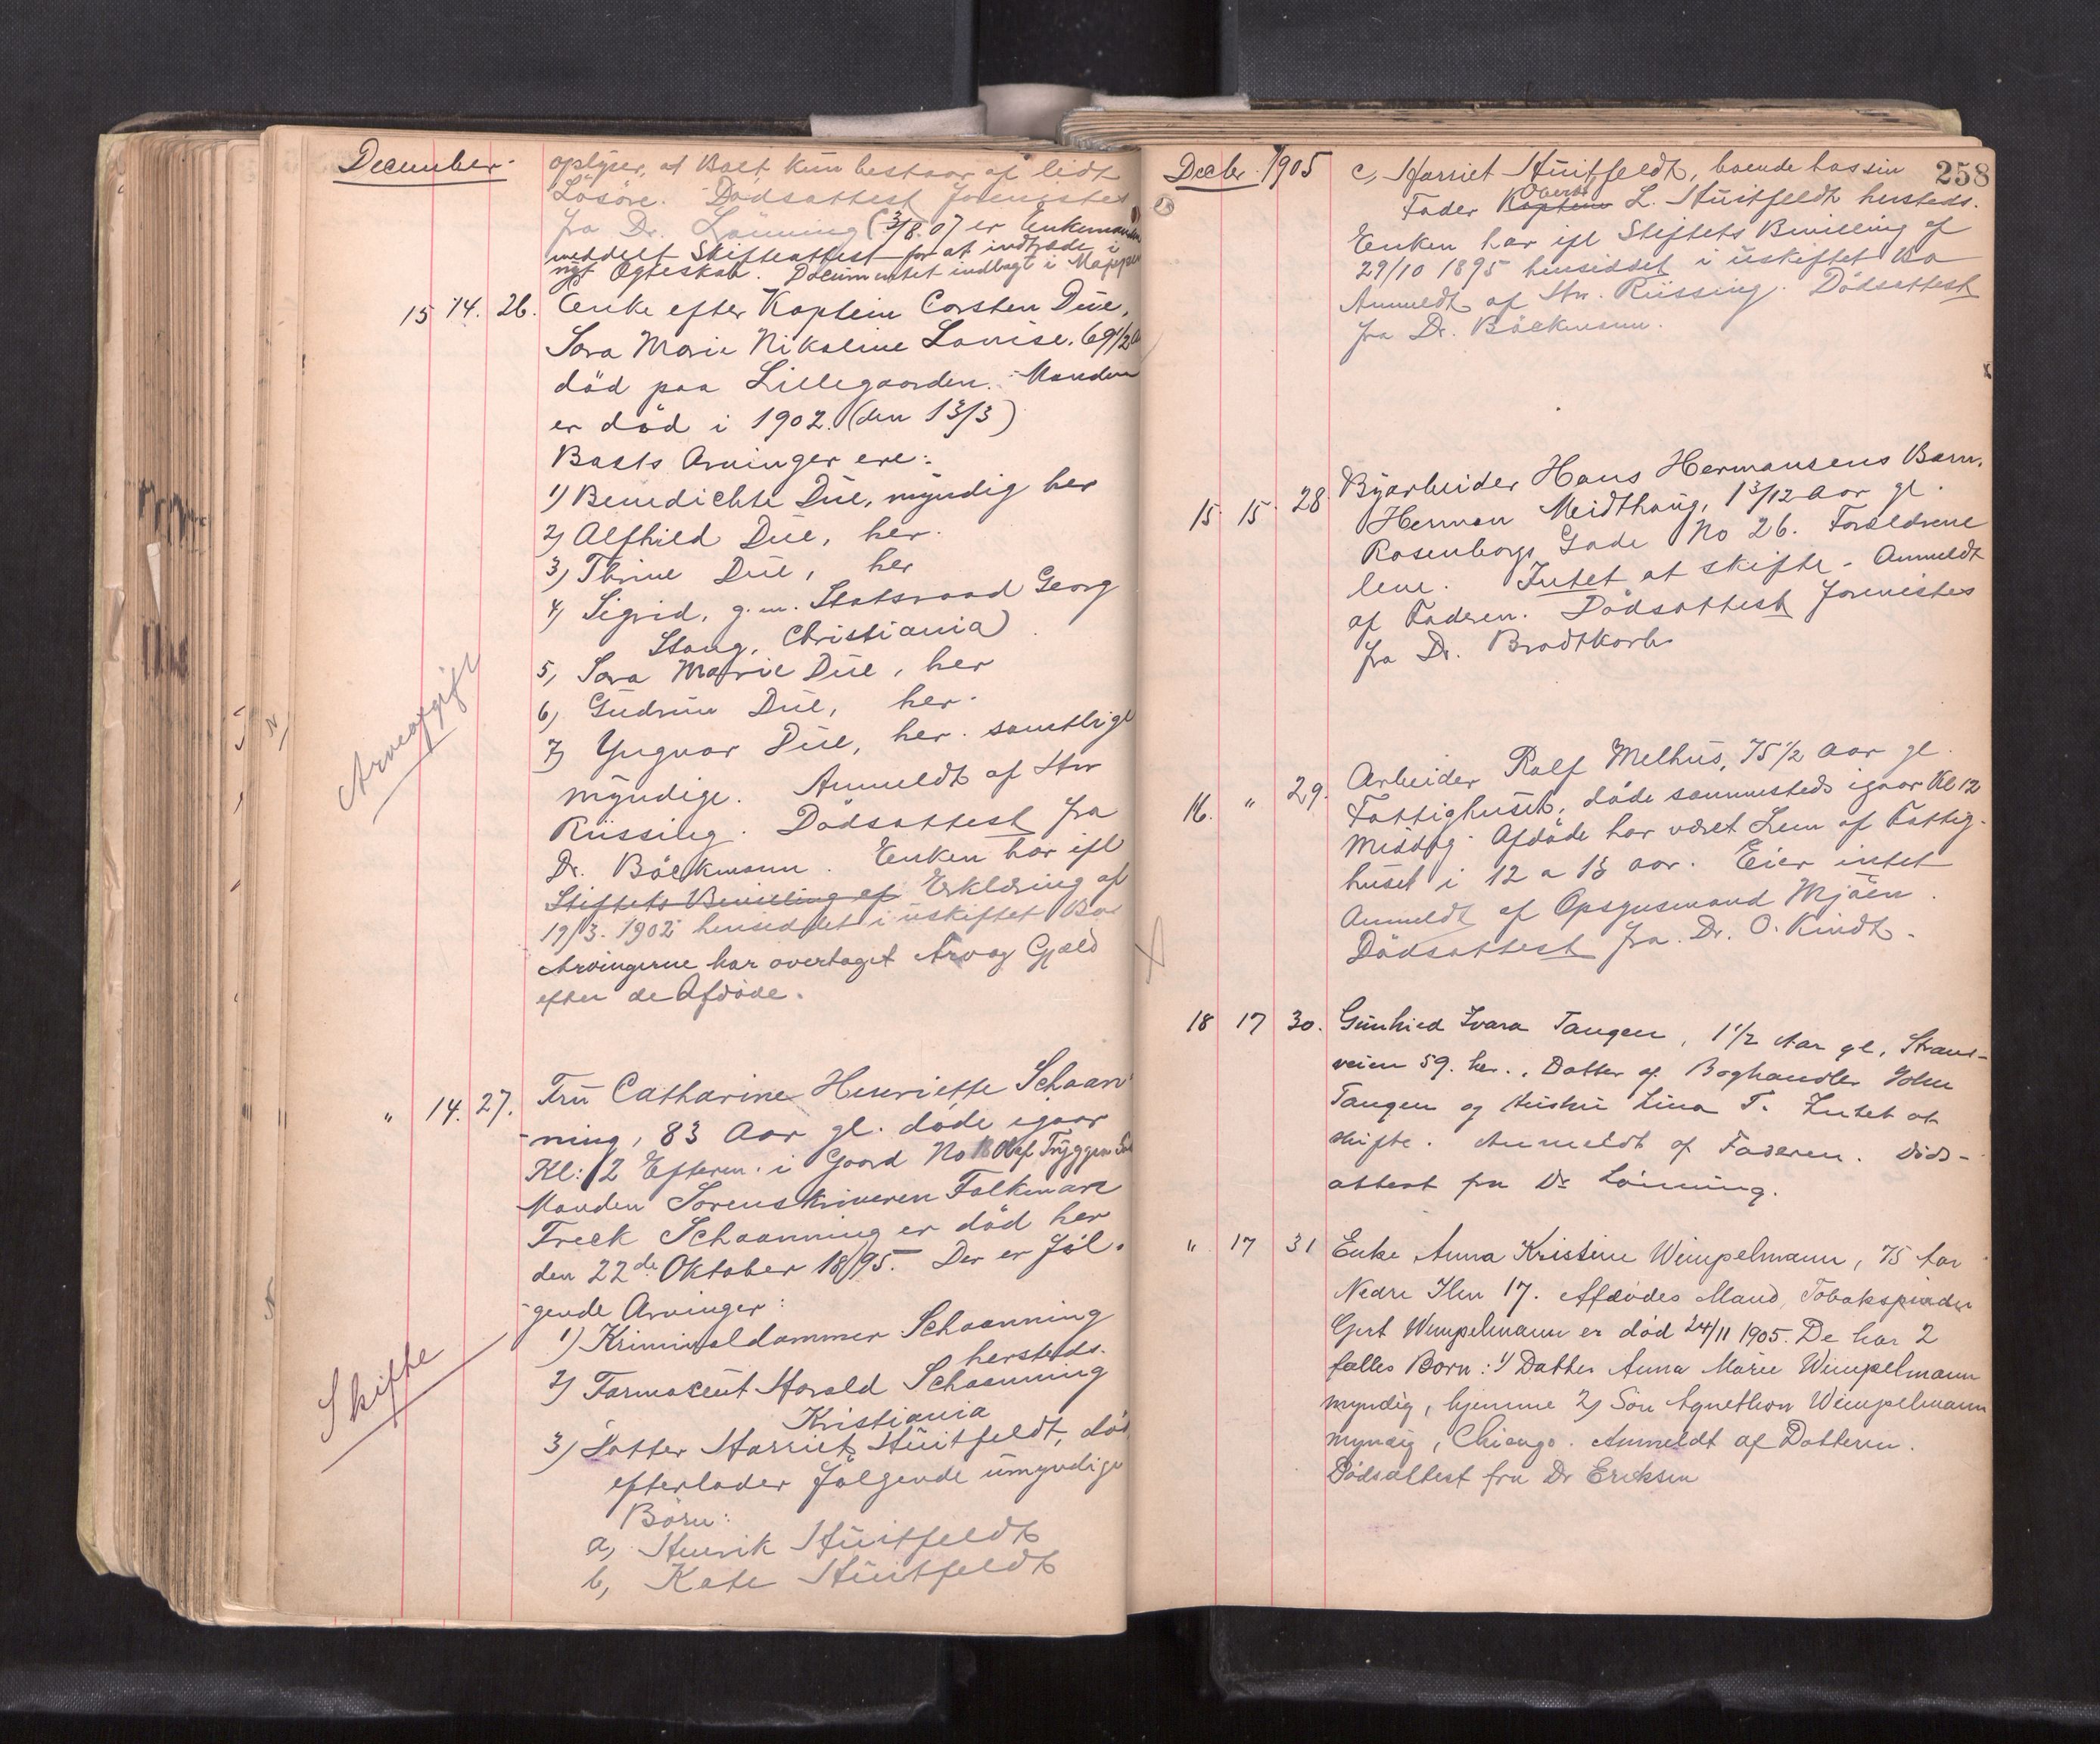 December.
oplyser, at Boet kun bestaar af lidt
Løsøre. Dødsattest forevistes
fra Dr. Lønning (3/8.07 er Enkemanden
meddelt Skifteattest for at indtræde i
nyt Ægteskab. Documentet indlagt i Mappen
15 14. 26. Enke efter Kaptein Carsten Düe,
Sara Marie Nikoline Louise. 69 1/2 
död paa Lillegaarden. Manden
er död i 1902. (den 13/3)
Boets Arvinger ere:
1) Benedichte Düe, myndig her
2) Alfhild Düe, her.
3) Thrine Düe, her
4) Sigrid, g. m. Statsraad Georg
Stang, Christiania
5, Sara Marie Düe, her
6) Gudrün Düe, her.
7) Yngvar Düe, her. samtlige
myndige. Anmeldt af Hr
Rüssing. Dødsattest fra
Dr. Böckmann. Enken har ifl
Stiftets Bevilling af Erklæring af
19/3. 1902 hensiddet i uskiftet Bo
Arvingerne har overtaget Arv og Gjæld
efter de Afdøde.
Arveafgift
" 14. 27. Frü Catharine Henriette Schaan
-ning, 83 Aar gl. døde igaar
Kl: 12 Efterm. i Gaard No Olaf Tryggves
Manden Sorenskriveren Falkmar
Freek Schaanning er død her
den 22de Oktober 1895. Der er føl-
-gende Arvinger:
1) Kriminaldommer Schaanning
hersteds.
2) Farmaceut Harald Schaanning
Kristiania
3) Datter Harriet Hüitfeldt, død,
efterlader følgende umyndige
Börn:
a, Henrik Hüitfeldt
b, Kate Hüitfeldt
Skifte
Decbr. 1905
258
c, Harriet Hüitfeldt, boende hos sin
Oberst
Fader Kaptein L. Hüitfeldt hersteds.
Enken har ifl Stiftets Bevilling af
29/10 1895 hensiddet i uskiftet Bo
Anmeldt af Hr. Rüssing. Dødsattest
fra Dr. Böckmann.
15 15 28 Byarbeider Hans Hermansens Barn,
Herman Meidthaug, 1 3/12 Aar gl.
Rosenborgs Gade No 26. Forældrene
leve. Intet at skifte. Anmeldt
af Faderen. Dødsattest forevistes
fra Dr. Brodtkorb
16. " 29. Arbeider Rolf Melhus, 75 1/2 Aar gl.
Fattighuset, døde sammesteds igaar Kl 12
Middag. Afdøde har været Lem af Fattig-
huset i 12 a 13 aar. Eier intet
Anmeldt af Opsynsmand Mjöen.
Dødsattest fra Dr. O. Kindt.
18 17 30. Gunhild Ivara Tangen, 1 1/2 Aar gl, Strand-
veien 59. her., Datter af Boghandler John
Tangen og Hustru Lina T. Intet at
skifte. Anmeldt af Faderen. Døds-
attest fra Dr Lönning.
" 17 31 Enke Anna Kristine Wimpelmann, 75 Aar
Nedre Ilen 17. Afdødes Mand, Tobakspinder
Gert Wimpelmann er død 24/11 1905. De har 2
fælles Børn: 1) Datter Anna Marie Wimpelmann
myndig, hjemme 2) Søn Agnethon Wimpelmann
myndig, Chicago. Anmeldt af Datteren.
Dødsattest fra Dr Ericksen